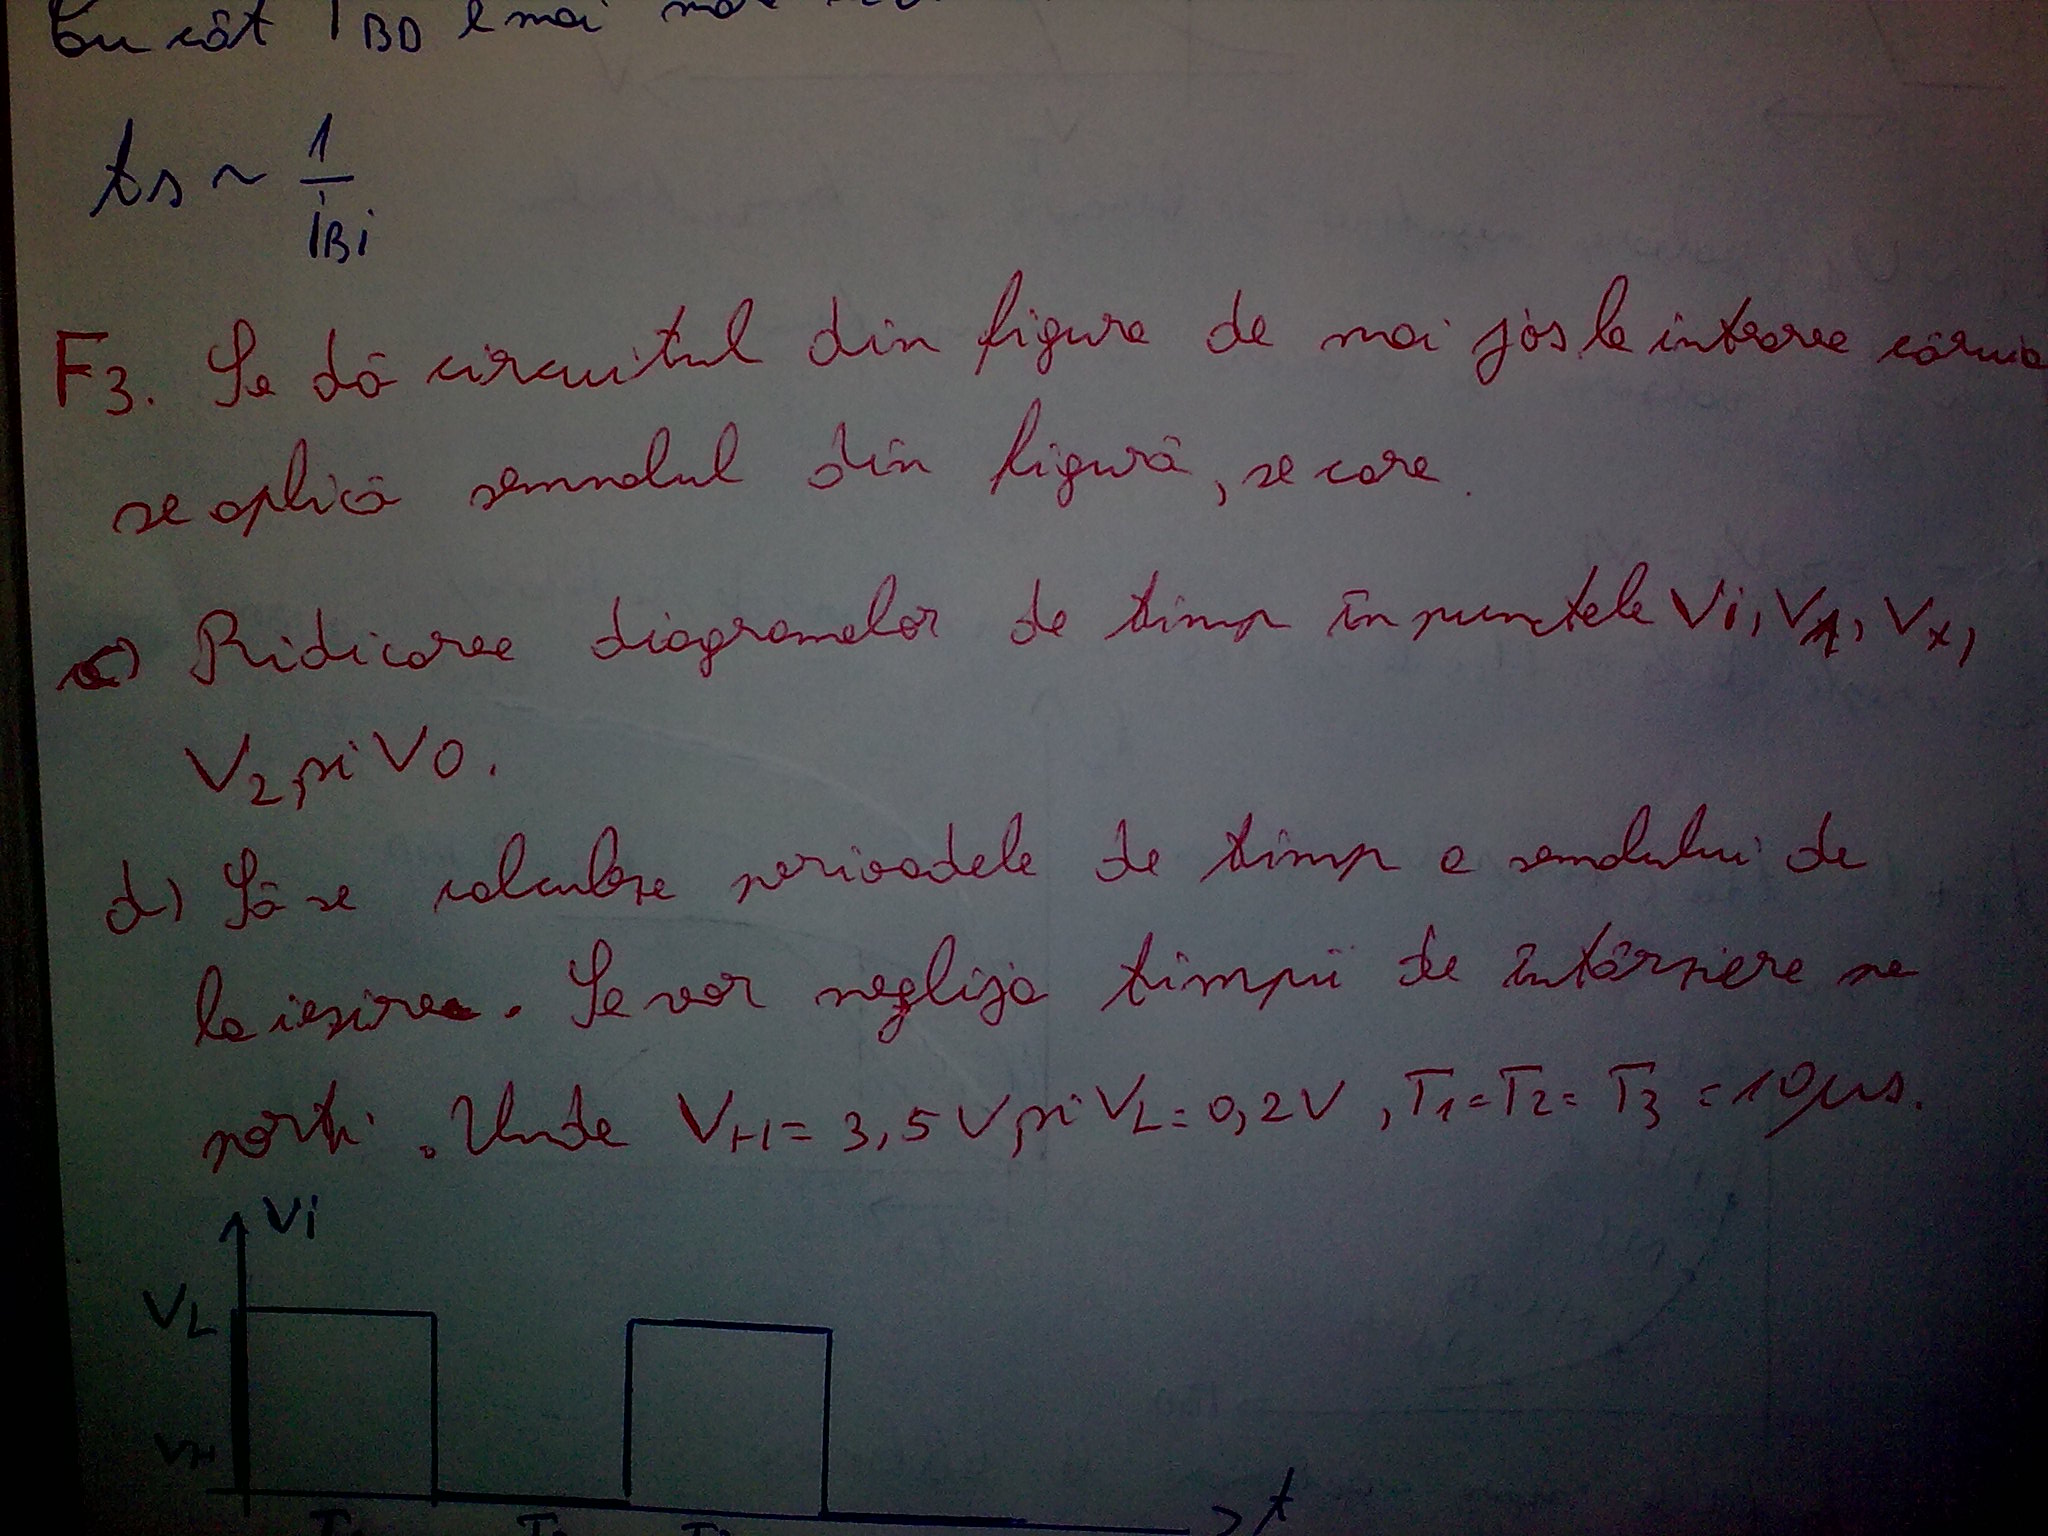 Cu cât IBD e mai
ts ~ 1/IBi
F3. Se dă circuitul din figura de mai jos la intrarea căruia
se aplică semnalul din figură, se cere
c) Ridicarea diagramelor de timp în punctele Vi, V1, Vx,
V2, și VO.
d) Să se calculeze perioadele de timp a semalului de
la ieșire. Se vor neglija timpii de întârziere pe
porți. Unde VH = 3,5V și VL = 0,2V, T1=T2= T3 = 10μs.
Vi
VL
VH
t